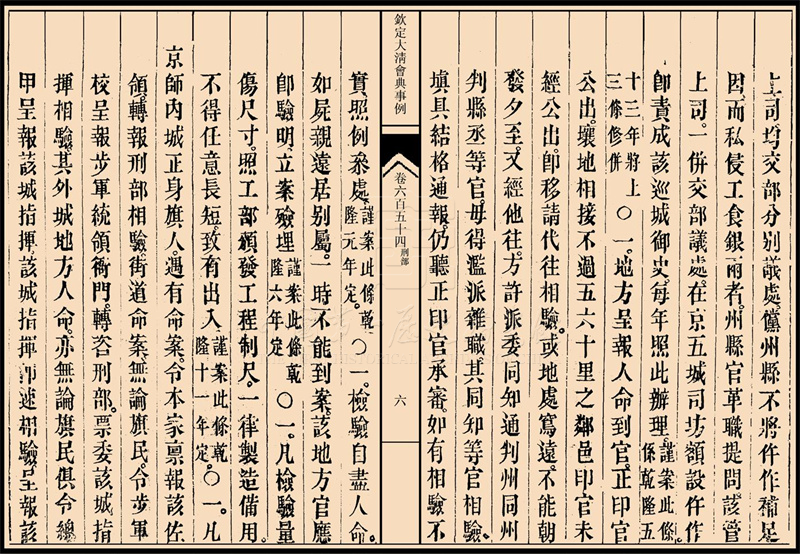 上司均交部分別議處儻州縣不將仵作補足
因而私侵工食銀兩者州縣官革職提問該管
上司一併交部議處在京五城司坊額設仵作
卽責成該巡城御史每年照此辦理謹案此條係乾隆五
十三年將上三條修併○一地方呈報人命到官正印官
公出壤地相接不過五六十里之鄰邑印官未
經公出卽移請代往相驗或地處寫遠不能朝
發夕至又經他往方許派委同知通判州同州
判縣丞等官毋得濫派雜職其同知等官相驗
塡具結格通報仍聽正印官承審如有相驗不
欽定大淸會典事例 卷六百五十四 刑部 六
實照例叅處謹案此條乾隆元年定○一檢驗自盡人命
如屍親遠居別屬一時不能到案該地方官應
卽驗明立案殮埋謹案此條乾隆六年定○一凡檢驗量
傷尺寸照工部頒發工程制尺一律製造備用
不得任意長短致有出入謹案此條乾隆十一年定○一凡
京師內城正身旗人遇有命案令本家禀報該佐
領轉報刑部相驗街道命案無論旗民令步軍
校呈報步軍統領衙門轉咨刑部票委該城指
揮相驗其外城地方人命亦無論旗民俱令總
甲呈報該城指揮該城指揮卽速相驗呈報該